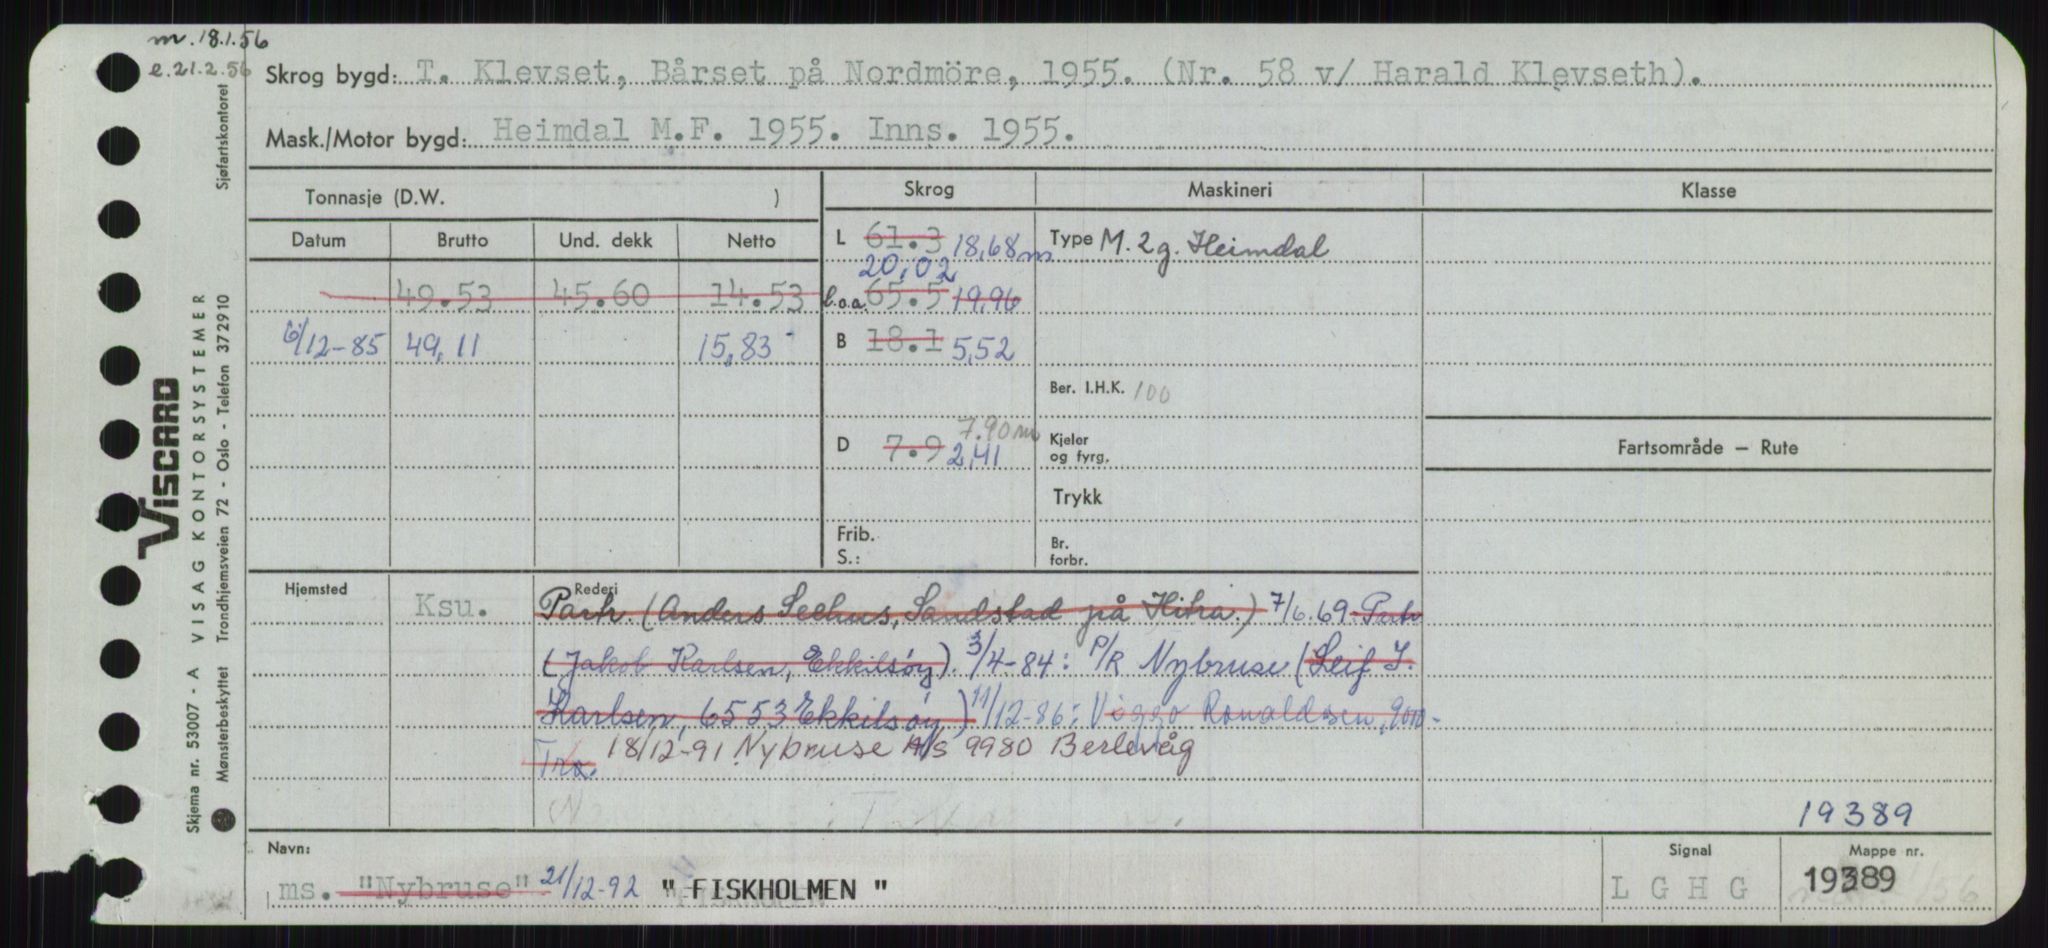 m. 18.1.56
e. 21.2.56
Skrog bygd: T. Klevset, Bårset på Nordmöre, 1955. (Nr. 58 v/ Harald Klevseth).
Mask./Motor bygd: Heimdal M.F. 1955. Inns. 1955.
Tonnasje (D.W. )
Skrog
Maskineri
Klasse
Datum Brutto Und. dekk Netto
L 61.3 18,68 m
Type M. 2 g. Heimdal
20,02
49.53 45.60 14.53
l.o.a. 65.5 19,96
6/12-85 49,11 15,83
B 18.1 5,52
Ber. I.H.K. 100
7.90 m
D 7.9 2,41
Kjeler
og fyrg.
Fartsområde — Rute
Trykk
Frib.
S.:
Br.
forbr.
Hjemsted
Rederi
Ksu.
Partr. (Anders Seehus, Sandstad på Hitra.) 7/6.69 Partr
(Jakob Karlsen, Ekkilsøy). 3/4-84: P/R Nybruse (Leif J.
Karlsen, 6553 Ekkilsøy) 11/12-86: Viggo Ronaldsen, 9000-
Trø. 18/12-91 Nybruse A/S 9980 Berlevåg
19389
Navn:
Signal
Mappe nr.
ms. "Nybruse" 21/12-92 " FISKHOLMEN "
L G H G
19389
Sjøfartskontoret
VISCARD
VISAG KONTORSYSTEMER
Skjema nr. 53007 - A
Mønsterbeskyttet Trondhjemsveien 72 - Oslo - Telefon 372910